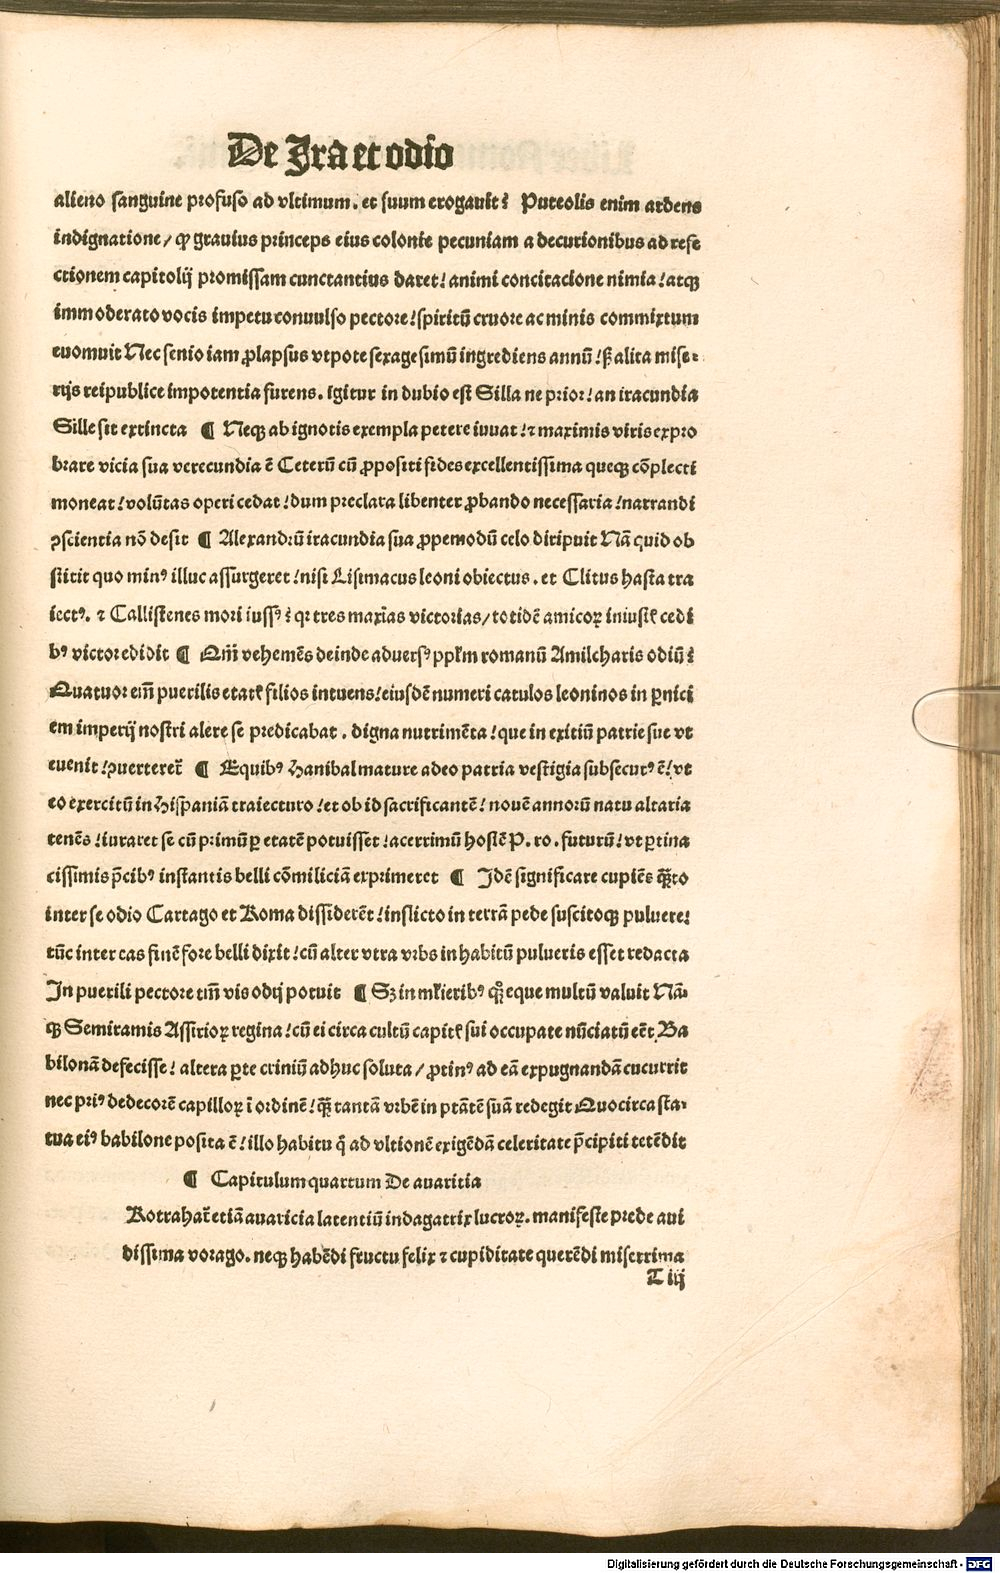 De Ira et odio
alieno sanguine profuso ad vltimum. et suum erogauit? Puteolis enim ardens
indignatione/ ꝙ grauius princeps eius colonie pecuniam a decurionibus ad refe
ctionem capitolij promissam cunctantius daret! animi concitacione nimia! atqꝫ
immoderato vocis impetu conuulso pectore! spiritū cruore ac minis commixtum
euomuit Nec senio iam ꝓlapsus vtpote sexagesimū ingrediens annū! ẞ alita mise-
rijs reipublice impotentia furens. igitur in dubio est Silla ne prior! an iracundia
Sille sit extincta ¶ Neqꝫ ab ignotis exempla petere iuuat! ⁊ maximis viris expro
brare vicia sua verecundia ē Ceterū cū ꝓpositi fides excellentissima queqꝫ cōplecti
moneat! volūtas operi cedat! dum preclara libenter ꝓbando necessaria! narrandi
ꝯscientia nō desit ¶ Alexandrū iracundia sua ꝓpemodū celo diripuit Nā quid ob
stitit quo minꝰ illuc assurgeret! nisi Lisimacus leoni obiectus. et Clitus hasta tra
iectꝰ. ⁊ Callistenes mori iussꝰ? qr tres maxīas victorias/ totidē amicoꝝ iniustꝭ cedi
bꝰ victor edidit ¶ Qm̄ vehemēs deinde aduersꝰ ppłm romanū Amilcharis odiū?
Quatuor em̄ puerilis etatꝭ filios intuens! eiusdē numeri catulos leoninos in ꝑnici
em imperij nostri alere se predicabat. digna nutrimēta! que in exitiū patrie sue vt
euenit! ꝯuerteret᷑ ¶ Equibꝰ Hanibal mature adeo patria vestigia subsecutꝰ ē! vt
eo exercitū in Hispaniā traiecturo! et ob id sacrificantē! nouē annorū natu altaria
tenēs! iuraret se cū primū ꝑ etatē potuisset! acerrimū hostē P. ro. futurū! vt ꝑtina
cissimis p̄cibꝰ instantis belli cōmiliciā exprimeret ¶ Idē significare cupiēs q̄ꝫto
inter se odio Cartago et Roma dissiderēt! inflicto in terrā pede suscitoqꝫ puluere!
tūc inter eas finē fore belli dixit! cū alter vtra vrbs in habitū pulueris esset redacta
In puerili pectore tm̄ vis odij potuit ¶ Sꝫ in młieribꝰ qꝫ eque multū valuit Nā-
qꝫ Semiramis Assirioꝝ regina! cū ei circa cultū capitꝭ sui occupate nūciatū eēt Ba
bilonā defecisse! altera ꝑte criniū adhuc soluta/ ꝓtinꝰ ad eā expugnandā cucurrit
nec priꝰ dedecorē capilloꝝ ī ordinē! q̄ꝫ tantā vrbē in ptātē suā redegit Quocirca sta-
tua eiꝰ babilone posita ē! illo habitu q̊ ad vltionē exigēdā celeritate p̄cipiti tetēdit
¶ Capitulum quartum De auaritia
Rotrahat᷑ etiā auaricia latentiū indagatrix lucroꝝ. manifeste prede aui
dissima vorago. neqꝫ habēdi fructu felix ⁊ cupiditate querēdi miserrima
T iij
Digitalisierung gefördert durch die Deutsche Forschungsgemeinschaft - DFG